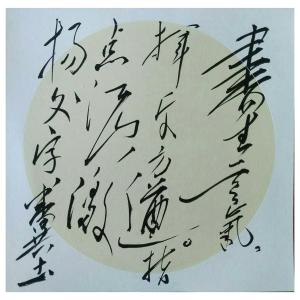 書生意氣
揮斥方遒。指
点江山激
揚文字